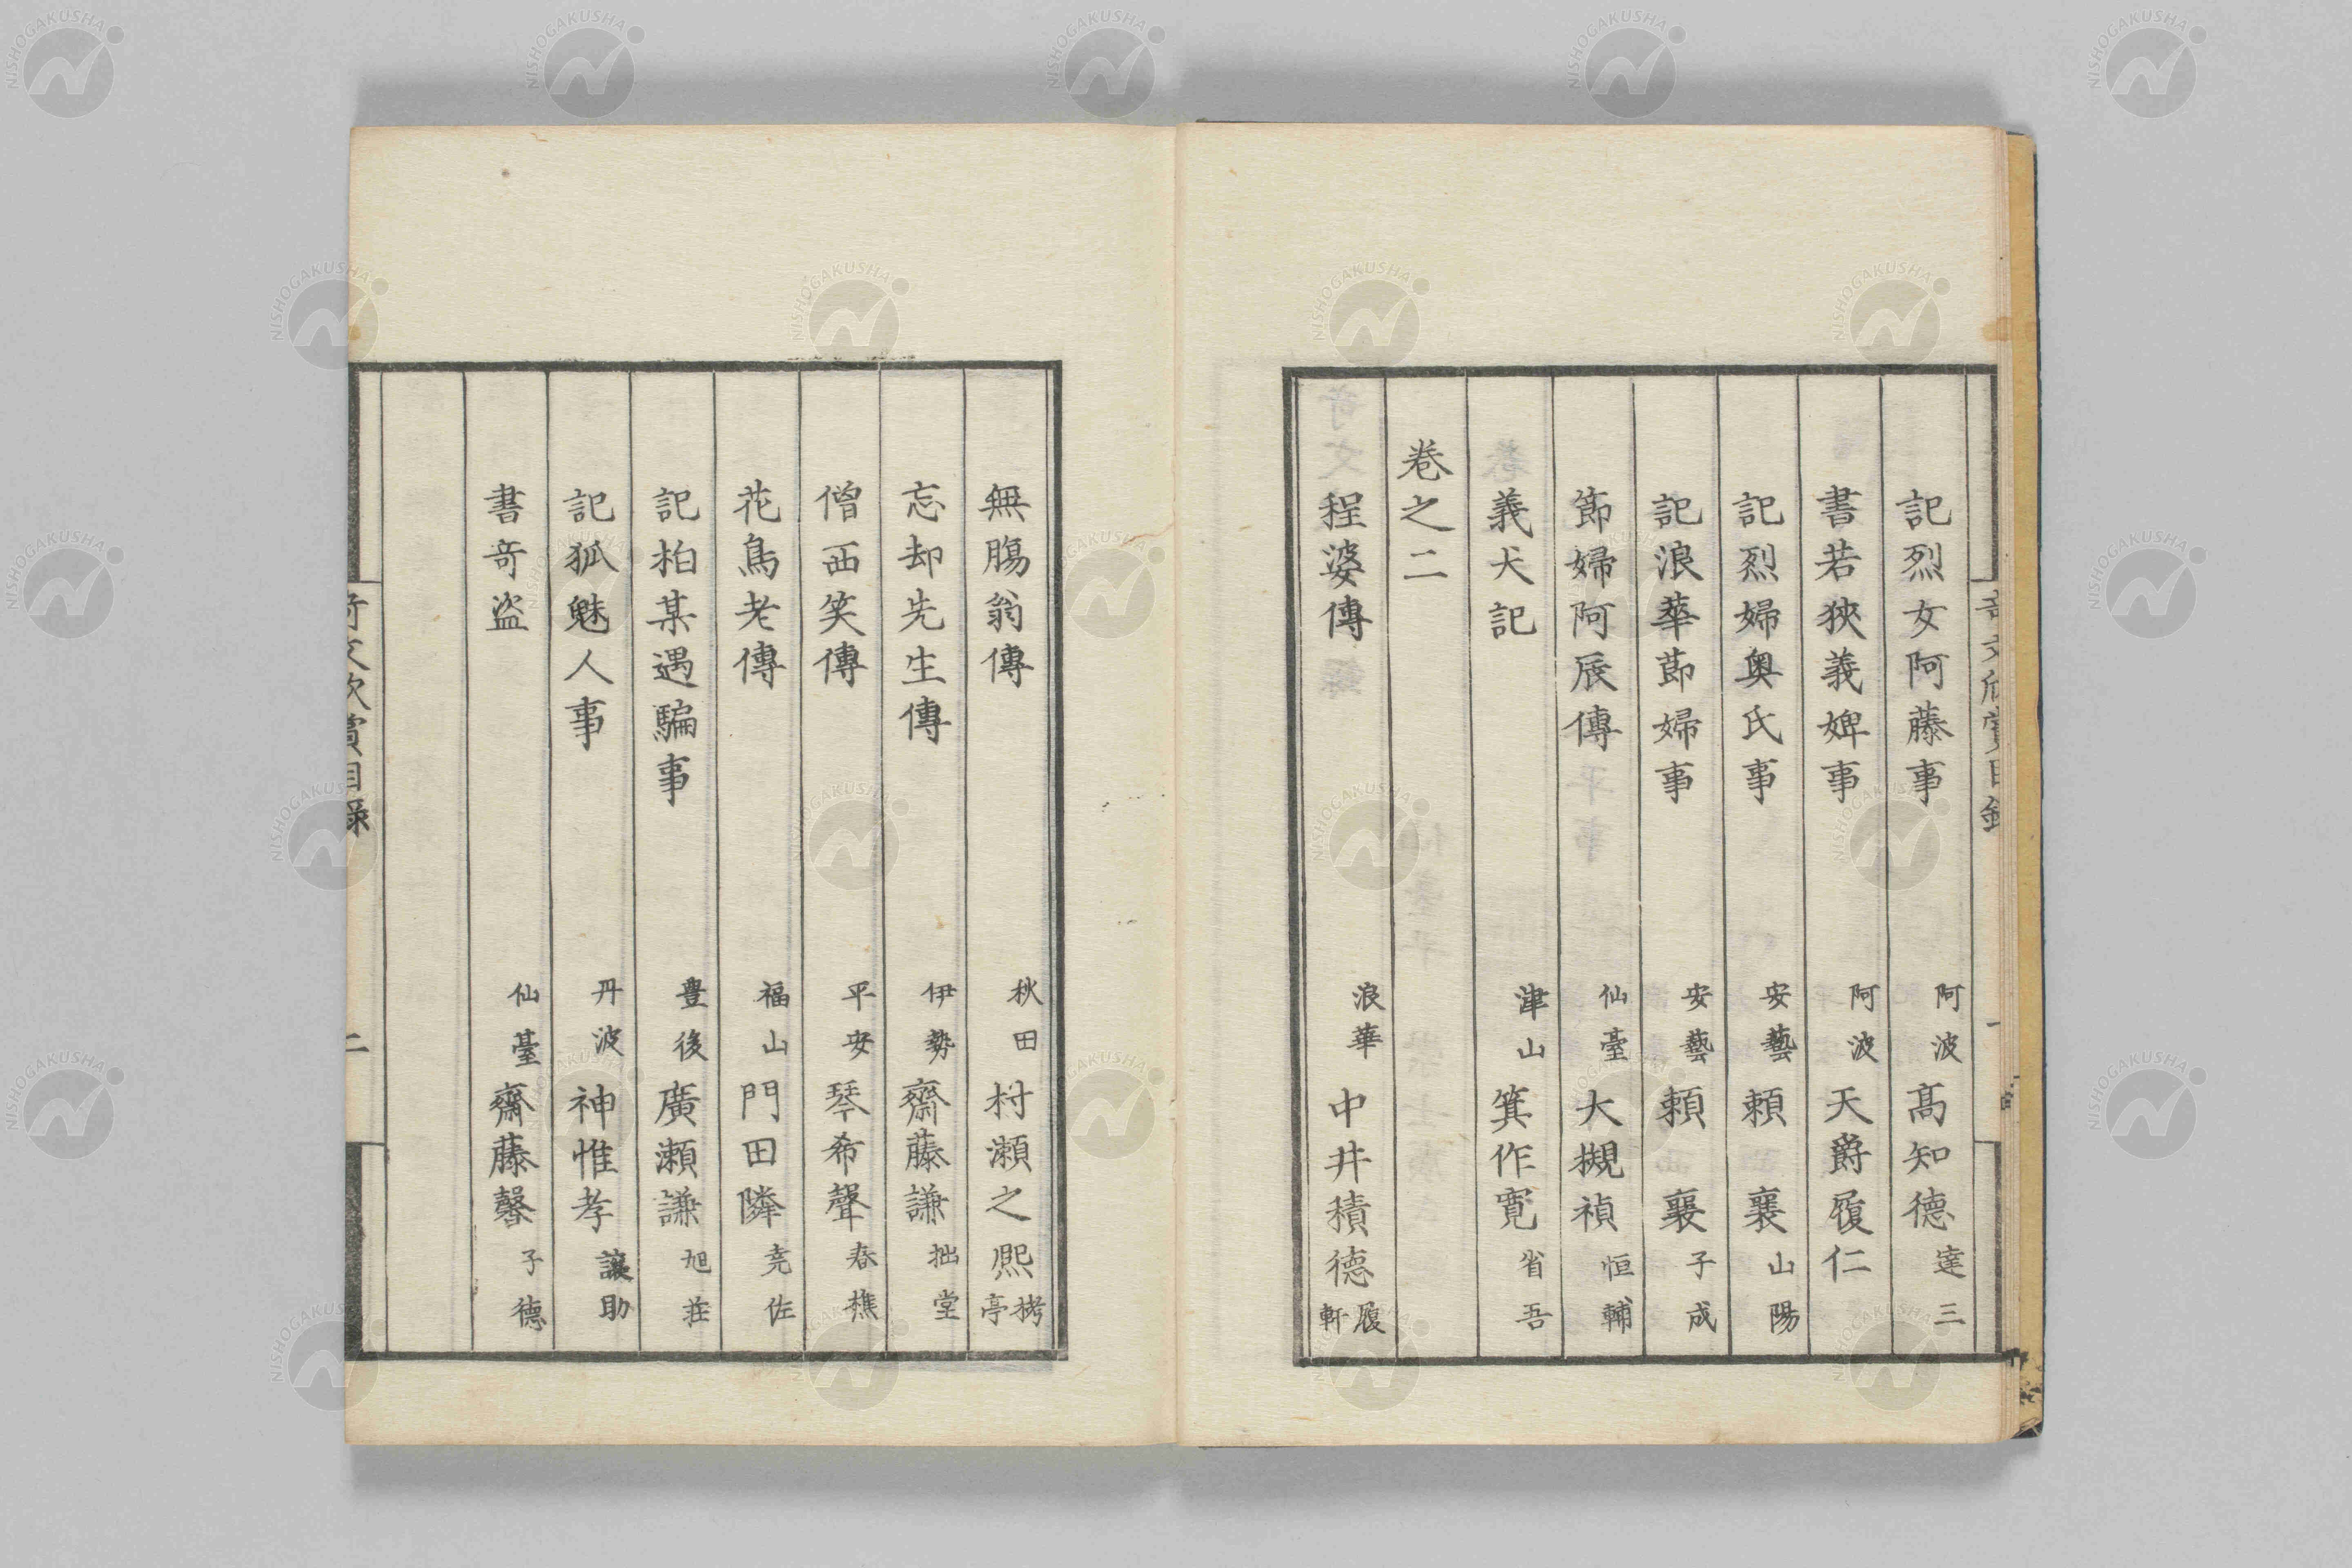 記烈女阿藤事 阿波 髙知德 達三
書若狹義婢事 阿波 天爵履仁
記烈婦奥氏事 安藝 賴襄 山陽
記浪華節婦事 安藝 賴襄 子成
節婦阿辰傳 仙臺 大槻禎 恒輔
義犬記 津山 箕作寛 省吾
卷之二
程婆傳 浪華 中井積德 履軒
無膓翁傳 秋田 村瀬之熙 栲亭
忘却先生傳 伊勢 齋藤謙 拙堂
僧西笑傳 平安 琴希聲 春樵
花鳥老傳 福山 門田隣 尭佐
記柏某遇騙事 豊後 廣瀬謙 旭荘
記狐魅人事 丹波 神惟孝 讓助
書竒盗 仙臺 齋藤馨 子德
竒文欣賞目録 二
NISHOGAKUSHA